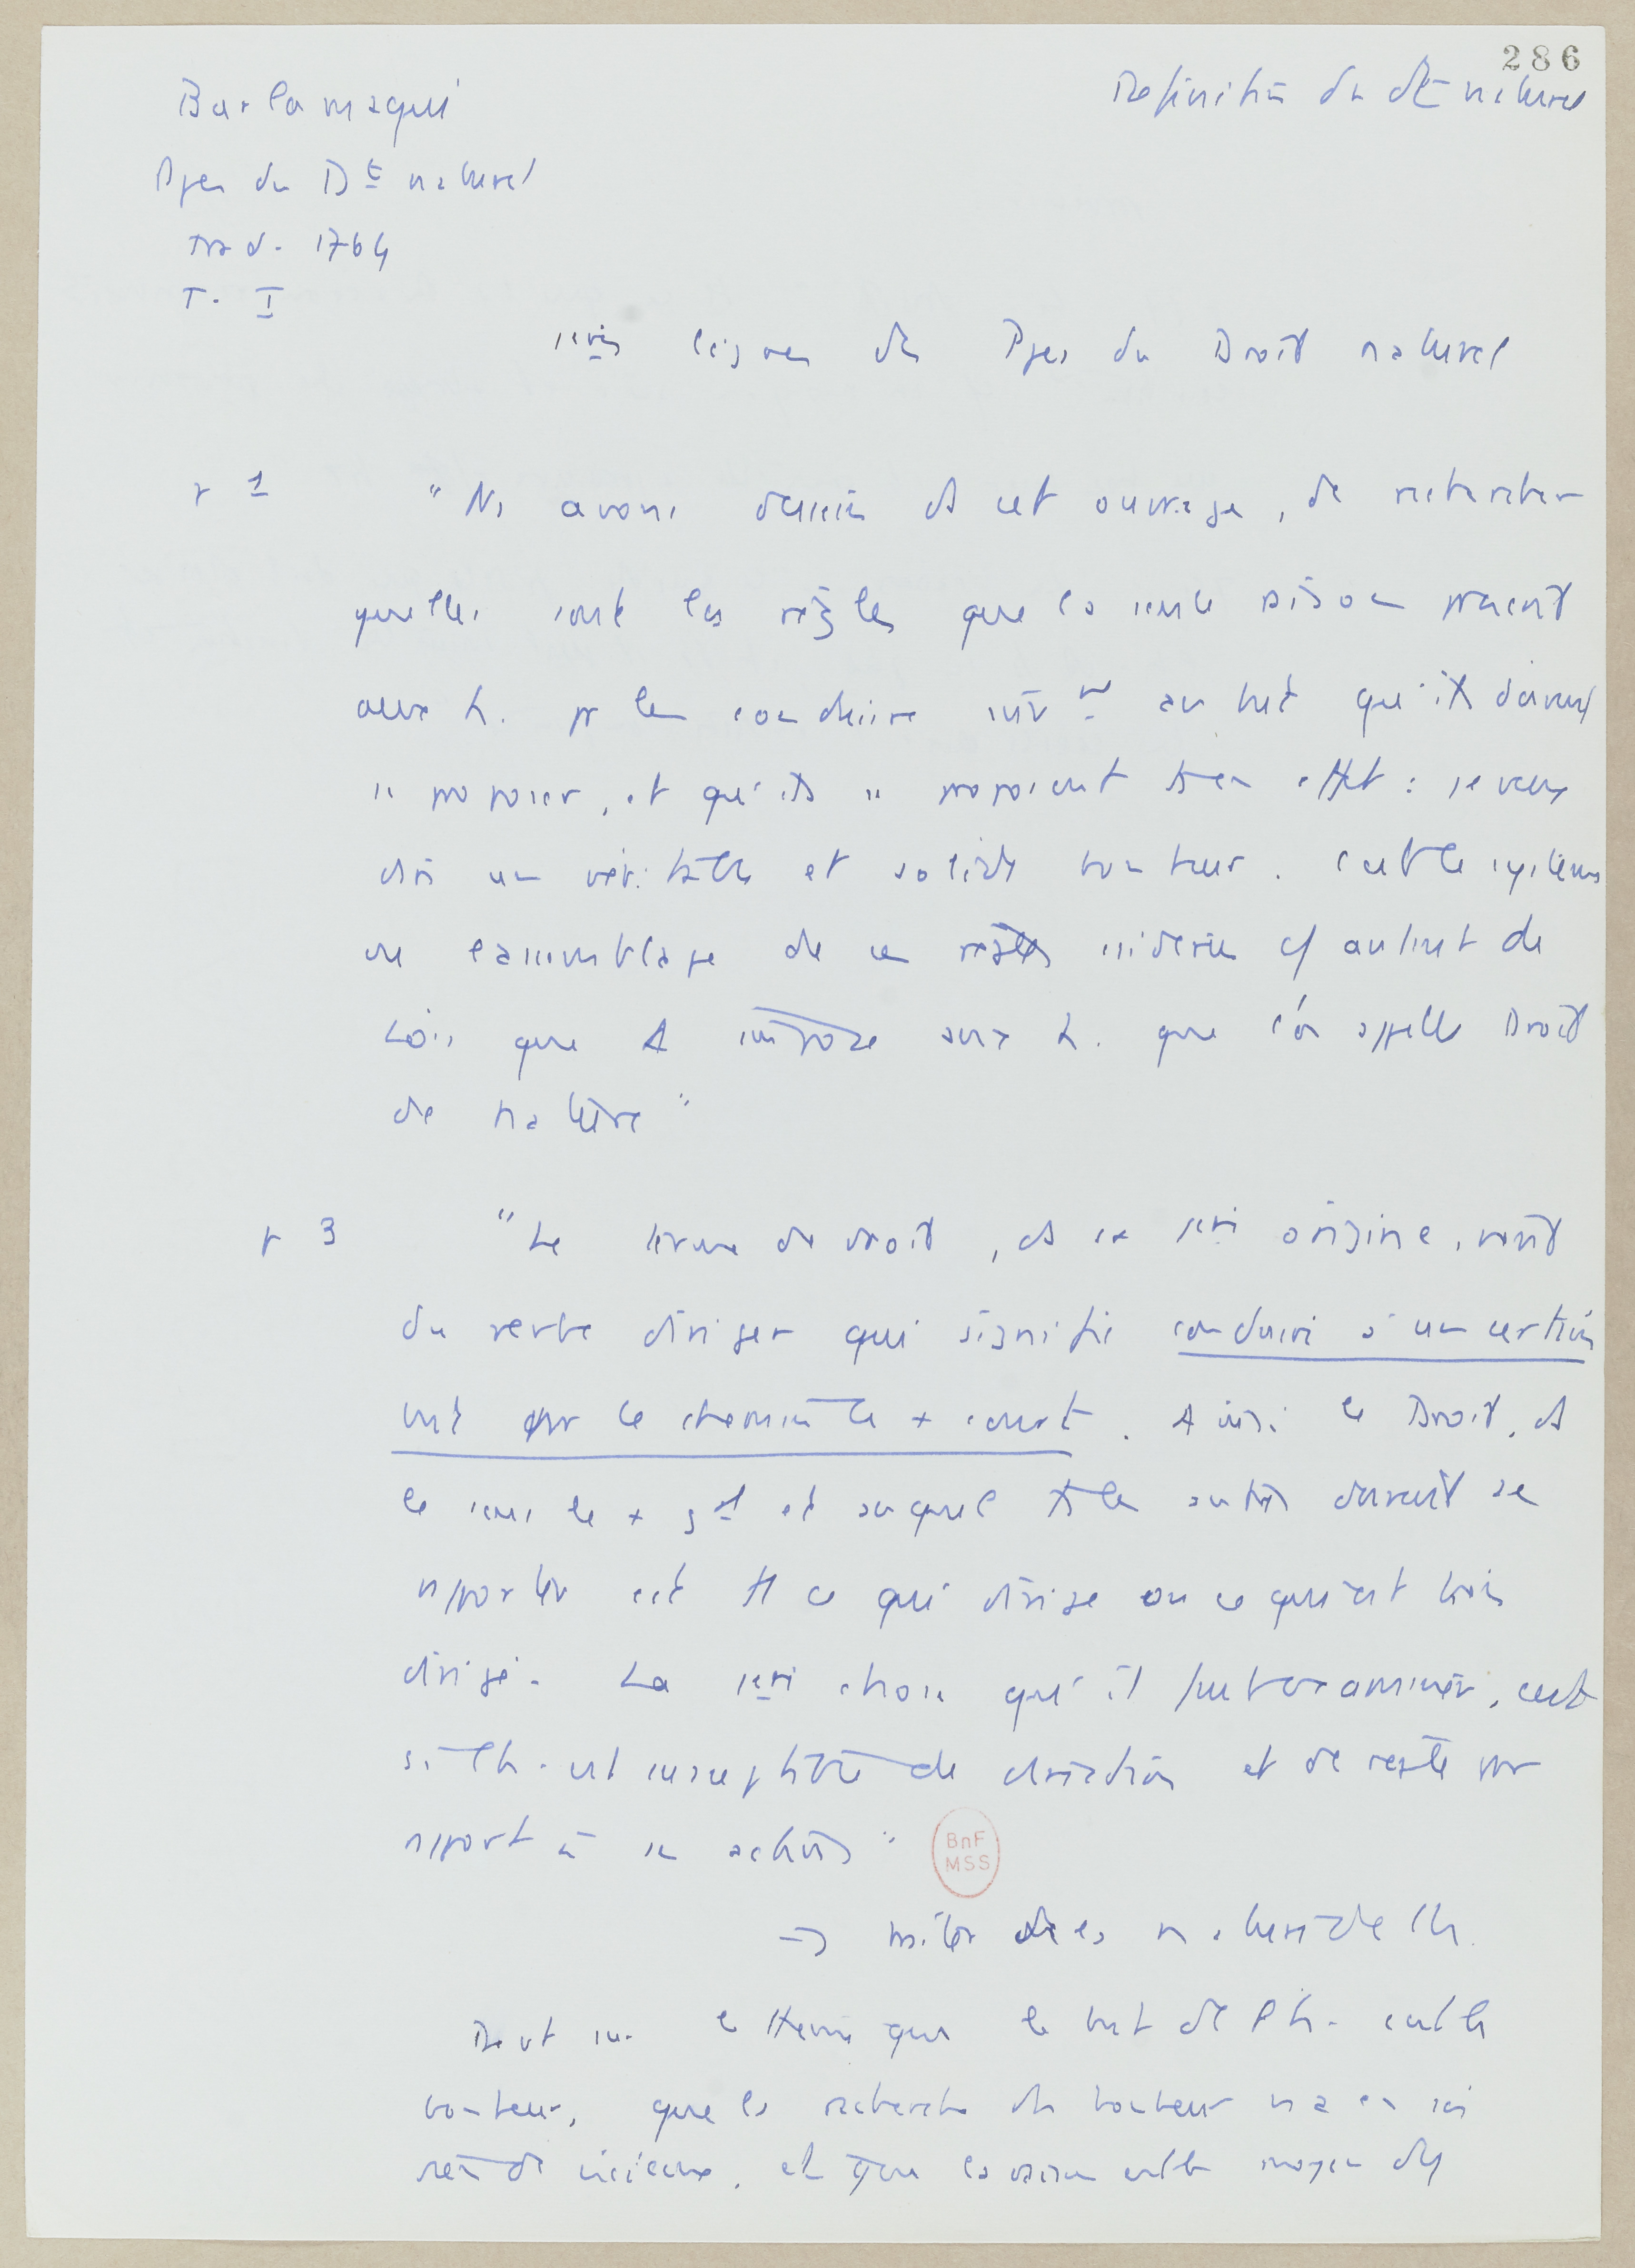 286
Définition du dt naturel
Burlamaqui
Ppes du Dt naturel
trad. 1764
T. I
1ères lignes des Ppes du Droit naturel
p 1 "Ns avons dessein ds cet ouvrage, de rechercher
quelles sont les règles que la seule raison prescrit
aux h. pr les conduire sûrmt au but qu'ils doivent
se proposer, et qu'ils se proposent ts en effet : je veux
dire un véritable et solide bonheur. C'est le système
ou l'assemblage de ces règles considérées c/ autant de
Lois que impose aux h. que l'on appelle Droit
de nature"
p 3 "Le terme de droit, ds sa 1ère origine, vient
du verbe diriger qui signifie conduire à un certain
but par le chemin le + court. Ainsi le Droit, ds
le sens le + gl et auquel ts les autres doivent se
rapporter est tt ce qui dirige ou ce qui est bien
dirigé. La 1ère chose qu'il faut examiner, c'est
si l'h. est susceptible de direction et de règle par
rapport à ses actions"
BnF
MSS
→ de la nature de l'h.
le thème que le but de l'h. c'est le
bonheur, que la recherche du bonheur n'a en soi
rien de vicieux, et que la raison est le moyen de